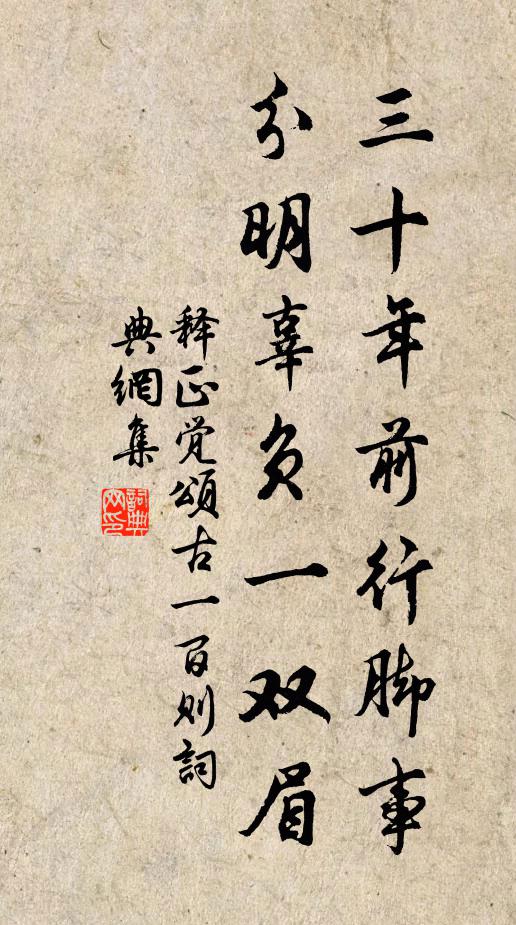 三十年前行脚事
分明辜负一双眉
释正觉颂古一百则词
典網集
詞典网印